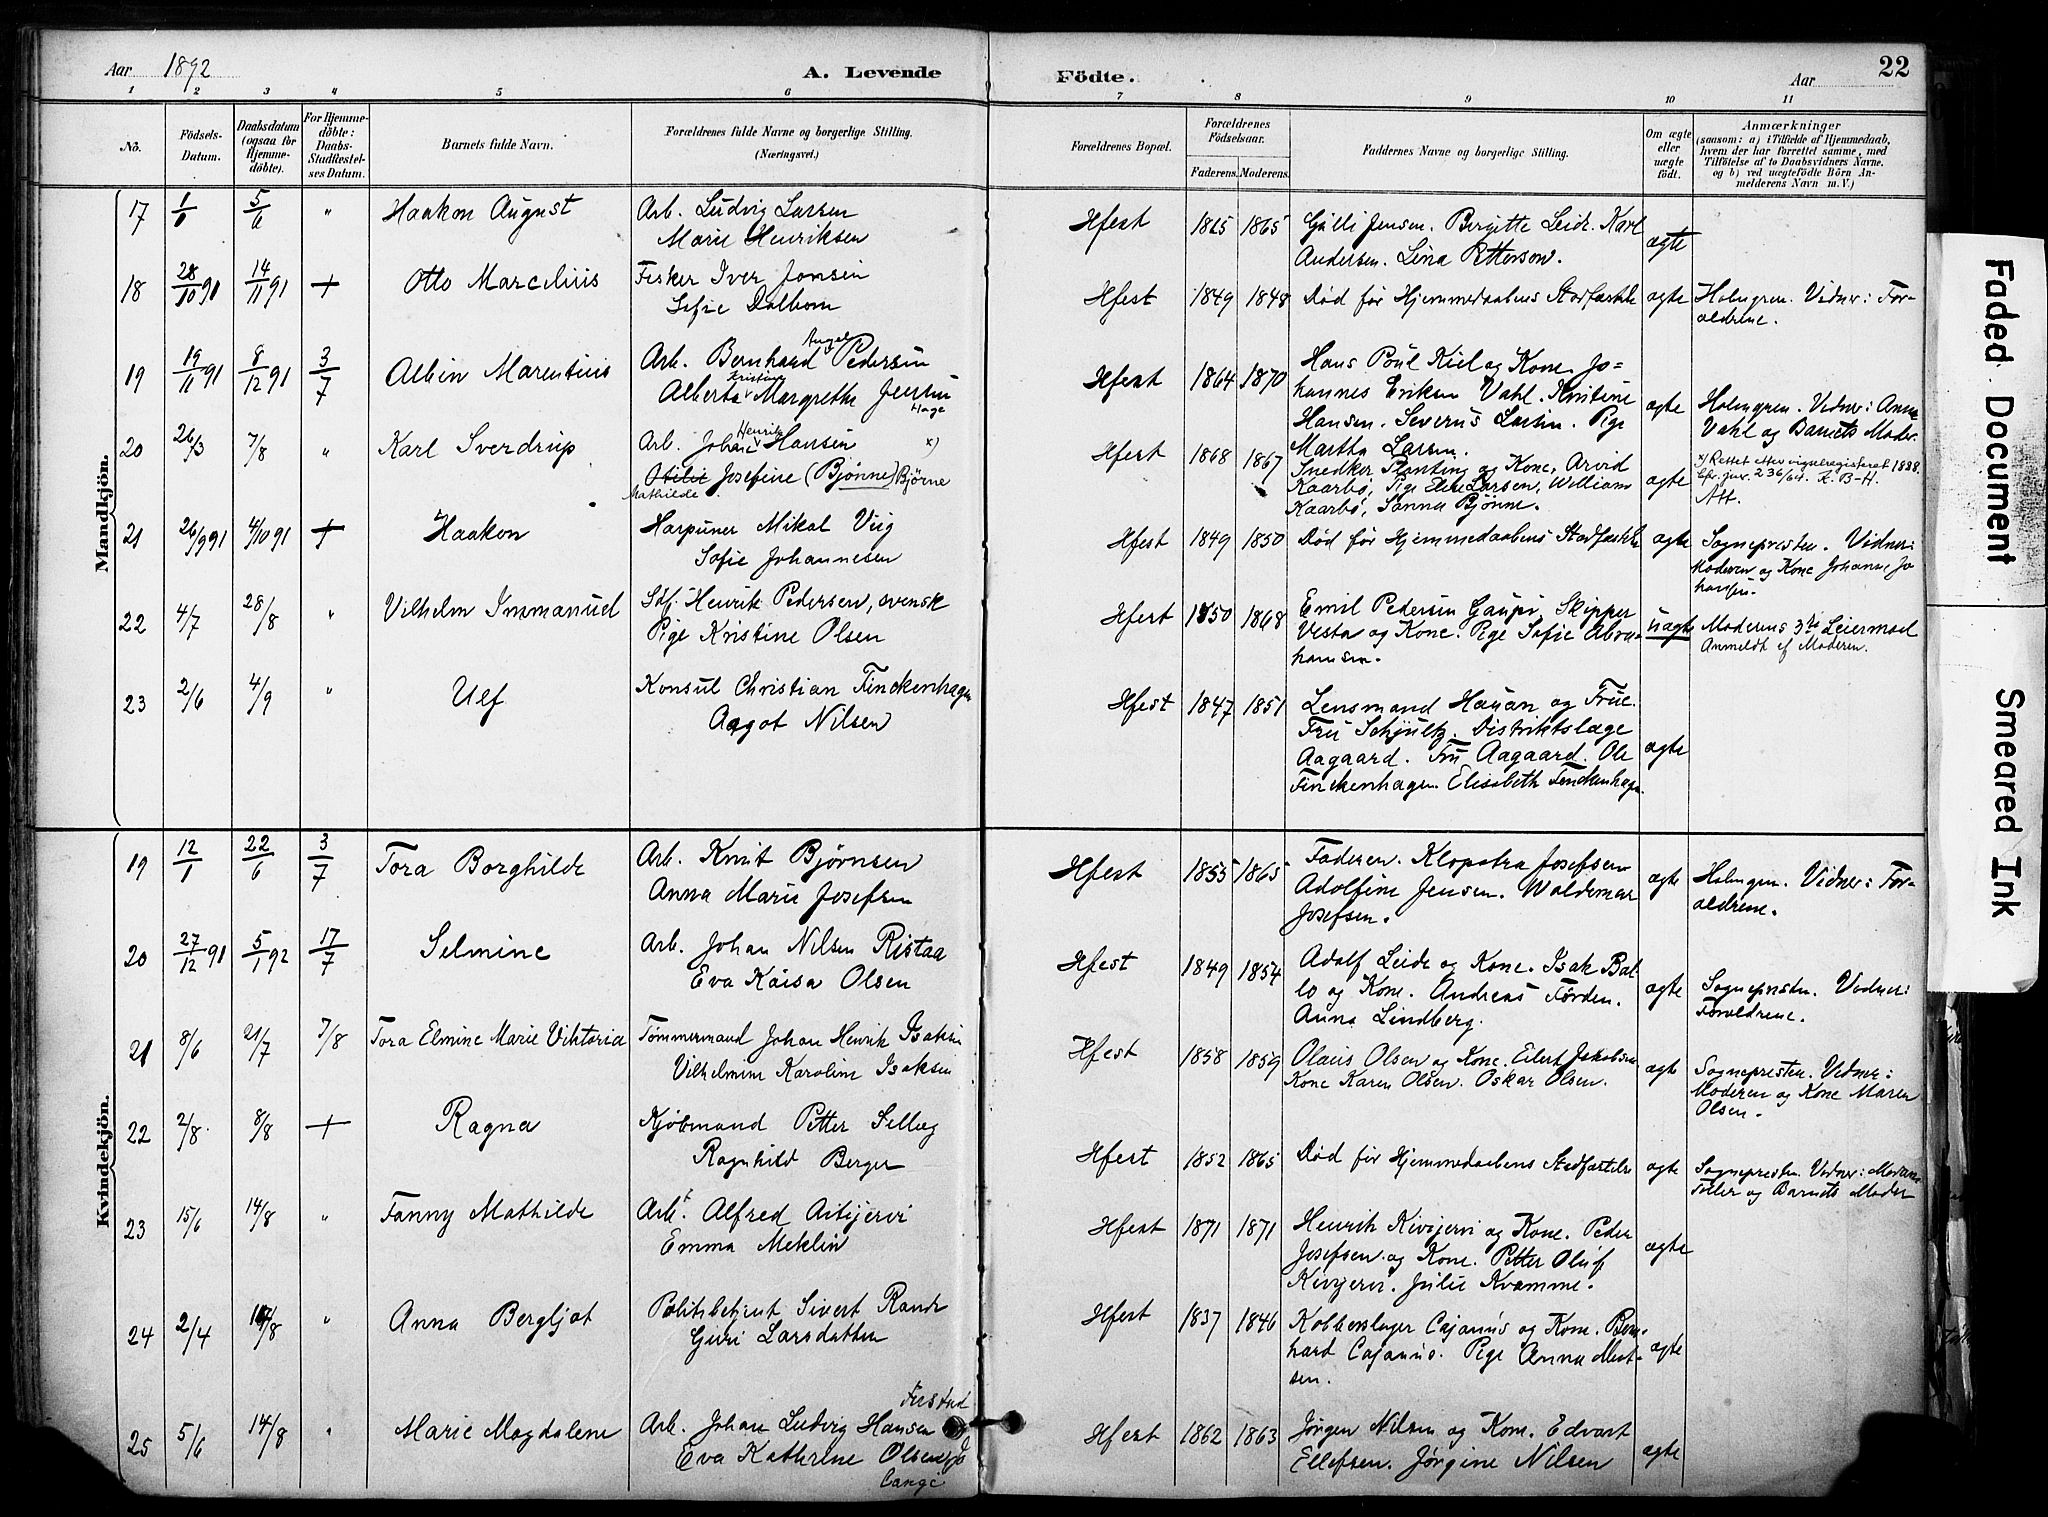 Aar 1892
A. Levende
Födte.
Aar
22
1 2 3 4 5 6 7 8 9 10 11
No.
Födsels-Datum.
Daabsdatum (ogsaa for Hjemme-döbte).
For Hjemme-döbte: Daabs-Stadfæstel-ses Datum.
Barnets fulde Navn.
Forældrenes fulde Navne og borgerlige Stilling.
(Næringsvei.)
Forældrenes Bopæl.
Forældrenes Födselsaar.
Faderens. Moderens.
Faddernes Navne og borgerlige Stilling.
Om ægte eller uægte födt.
Anmærkninger
(saasom: a) i Tilfælde af Hjemmedaab,
hvem der har forrettet samme, med
Tilföielse af to Daabsvidners Navne.
og b) ved uægtefödte Börn An-
melderens Navn m. V.)
Mandkjön.
17 5/6 " Haakon August Arb. Ludvig Larsen Hfest 1865 Birgitte Leide. Karl
Marie Henriksen Andersen. Lina Petterson. ægte
18 28/10 91 14/11 91 + Otto Marcelius Fisker Iver Jonsen Hfest 1849 1848 Død før Hjemmedaabens Stadfæstelse ægte Holmgren. Vidner: For-
Sofie Dalbom ældrene.
19 19/11 91 8/12 91 3/7 Albin Marentius Arb. Bernhard Angel Pedersen Hfest 1864 1870 Hans Poul Kiel og Kone. Jo-
Alberta Kristine Margrethe Jensen hannes Eriksen Vahl. Kristine
Hage Hansen. Severus Larsen. Pige ægte Holmgren. Vidner: Anna
Martha Larsen. Vahl og Barnets Moder.
20 26/3 7/8 " Karl Sverdrup Arb. Johan Henrik Hansen x) Hfest 1868 1867 Snedker Planting og Kone. Arvid
Otilie Josefine (Bjønne) Bjørne Kaarbø, Pige Larsen, William ægte x) Rettet etter vigselregisteret 1888
Mathilde Kaarbø, Sanna Bjønne. jnr. 236/64. K. B-H.
Att.
21 26/9 91 4/10 91 + Haakon Harpuner Mikal Viig Hfest 1849 1850 Død før Hjemmedaabens Stadfæstelse ægte Sognepresten. Vidner:
Sofie Johannesen Moderen og Kone Johanne Jo
hansen.
22 4/7 28/8 " Vilhelm Immanuel Henrik Pedersen, svensk Hfest 1850 1868 Emil Pedersen Skipper uægte Moderens 3die Leiermaal
Pige Kristine Olsen Vesta og Kone. Pige Sofie Abra- Anmeldt af Moderen.
hamsen.
23 2/6 4/9 " Ulf Konsul Christian Finckenhagen Hfest 1847 1851 Lensmand Hauan og Frue.
Aagot Nilsen Fru Schjultz. Distriktslæge
Aagaard. Fru Aagaard. Ole ægte
Finckenhagen. Elisabeth Finckenhagen.
Kvindekjön.
19 12/1 22/6 3/7 Tora Borghilde Arb. Knut Bjørnsen Hfest 1855 1865 Faderen. Klopatra Josefsen
Anna Marie Josefsen Adolfine Jensen. Waldemar ægte Holmgren. Vidner: For-
Josefsen. ældrene.
20 27/12 91 5/1 92 17/7 Selmine Arb. Johan Nilsen Ristaa Hfest 1849 1854 Adolf Leide og Kone. Isak Bal-
Eva Kaisa Olsen lo og Kone. Andreas Førden. ægte Sognepresten. Vidner:
Anna Lindberg. Forældrene.
21 8/6 21/7 7/8 Tora Elmine Marie Viktoria Tømmermand Johan Henrik Isaksen Hfest 1858 1859 Olaus Olsen og Kone. Eilert Jakobsen ægte Sognepresten. Vidner:
Vilhelmine Karoline Isaksen Kone Karen Olsen. Oskar Olsen. Moderen og Kone Maren
Olsen.
22 2/8 8/8 + Ragna Kjøbmand Petter Selleg Hfest 1852 1865 Død før Hjemmedaabens Stadfæstelse ægte Sognepresten. Vidner:
Ragnhild Berger og Barnets Moder
23 15/6 14/8 " Fanny Mathilde Arb. Alfred Aitijervi Hfest 1871 1871 Henrik Kivijervi og Kone. Peder
Emma Meklin Josefsen og Kone. Petter Oluf ægte
Kivijervi. Julie Kvamme.
24 2/4 14/8 " Anna Bergljot Politibetjent Sivert Rande Hfest 1837 1846 Kobberslager Cajanus og Kone. Bern-
Guri Larsdatter hard Cajanus. Pige Anna Mort- ægte
sen.
25 5/6 14/8 " Marie Magdalene Arb. Johan Ludvig Hansen Hfest 1862 1863 Jørgen Nilsen og Kone. Edvart
Eva Kathrine Olsen Ellefsen. Jørgine Nilsen ægte
Lange
Faded Document
Smeared Ink